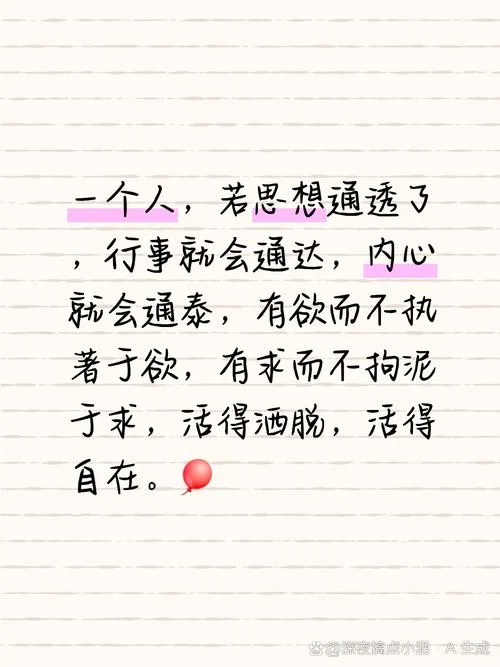 一个人，若思想通透了
，行事就会通达，内心
就会通泰，有欲而不执
著于欲，有求而不拘泥
于求，活得洒脱，活得
自在。🎈
@深夜搞点小酒 · A 生成